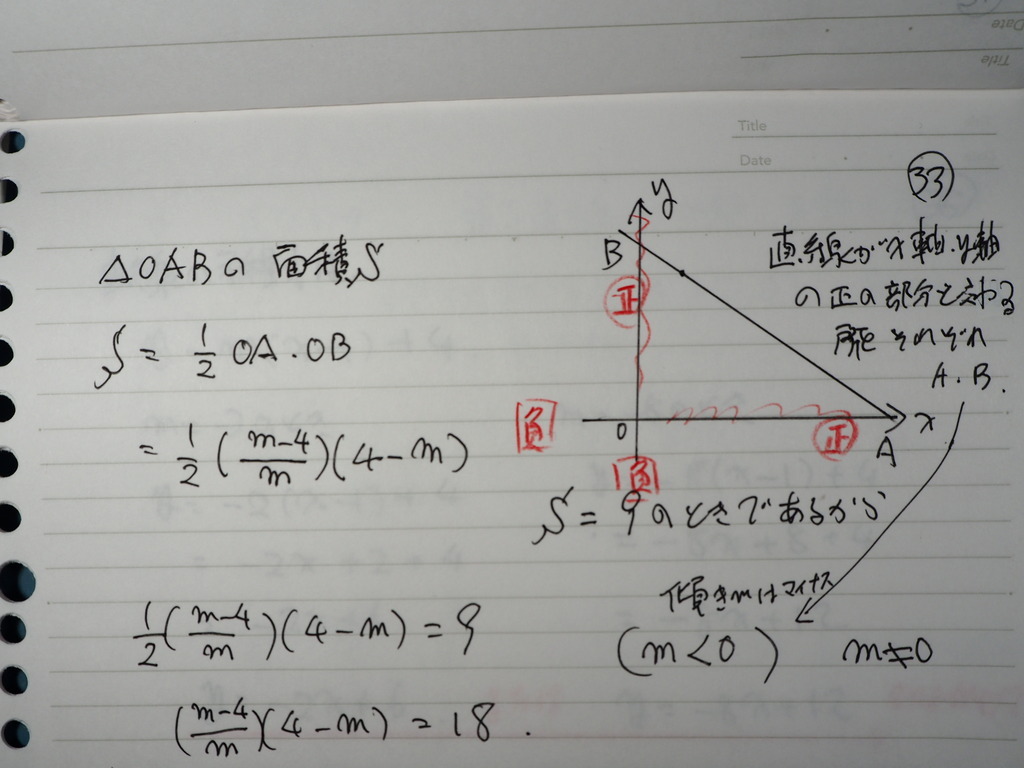 Title
Date
㉝
直線がx軸・y軸
の正の部分と交わる
所をそれぞれ
A・B.
y
B
正
負
O
正
A
x
負
△OABの面積S
S = 1/2 OA・OB
= 1/2 (m-4/m)(4-m)
S = 9のときであるから
傾きmはマイナス
(m<0) m≠0
1/2 (m-4/m)(4-m) = 9
(m-4/m)(4-m) = 18.